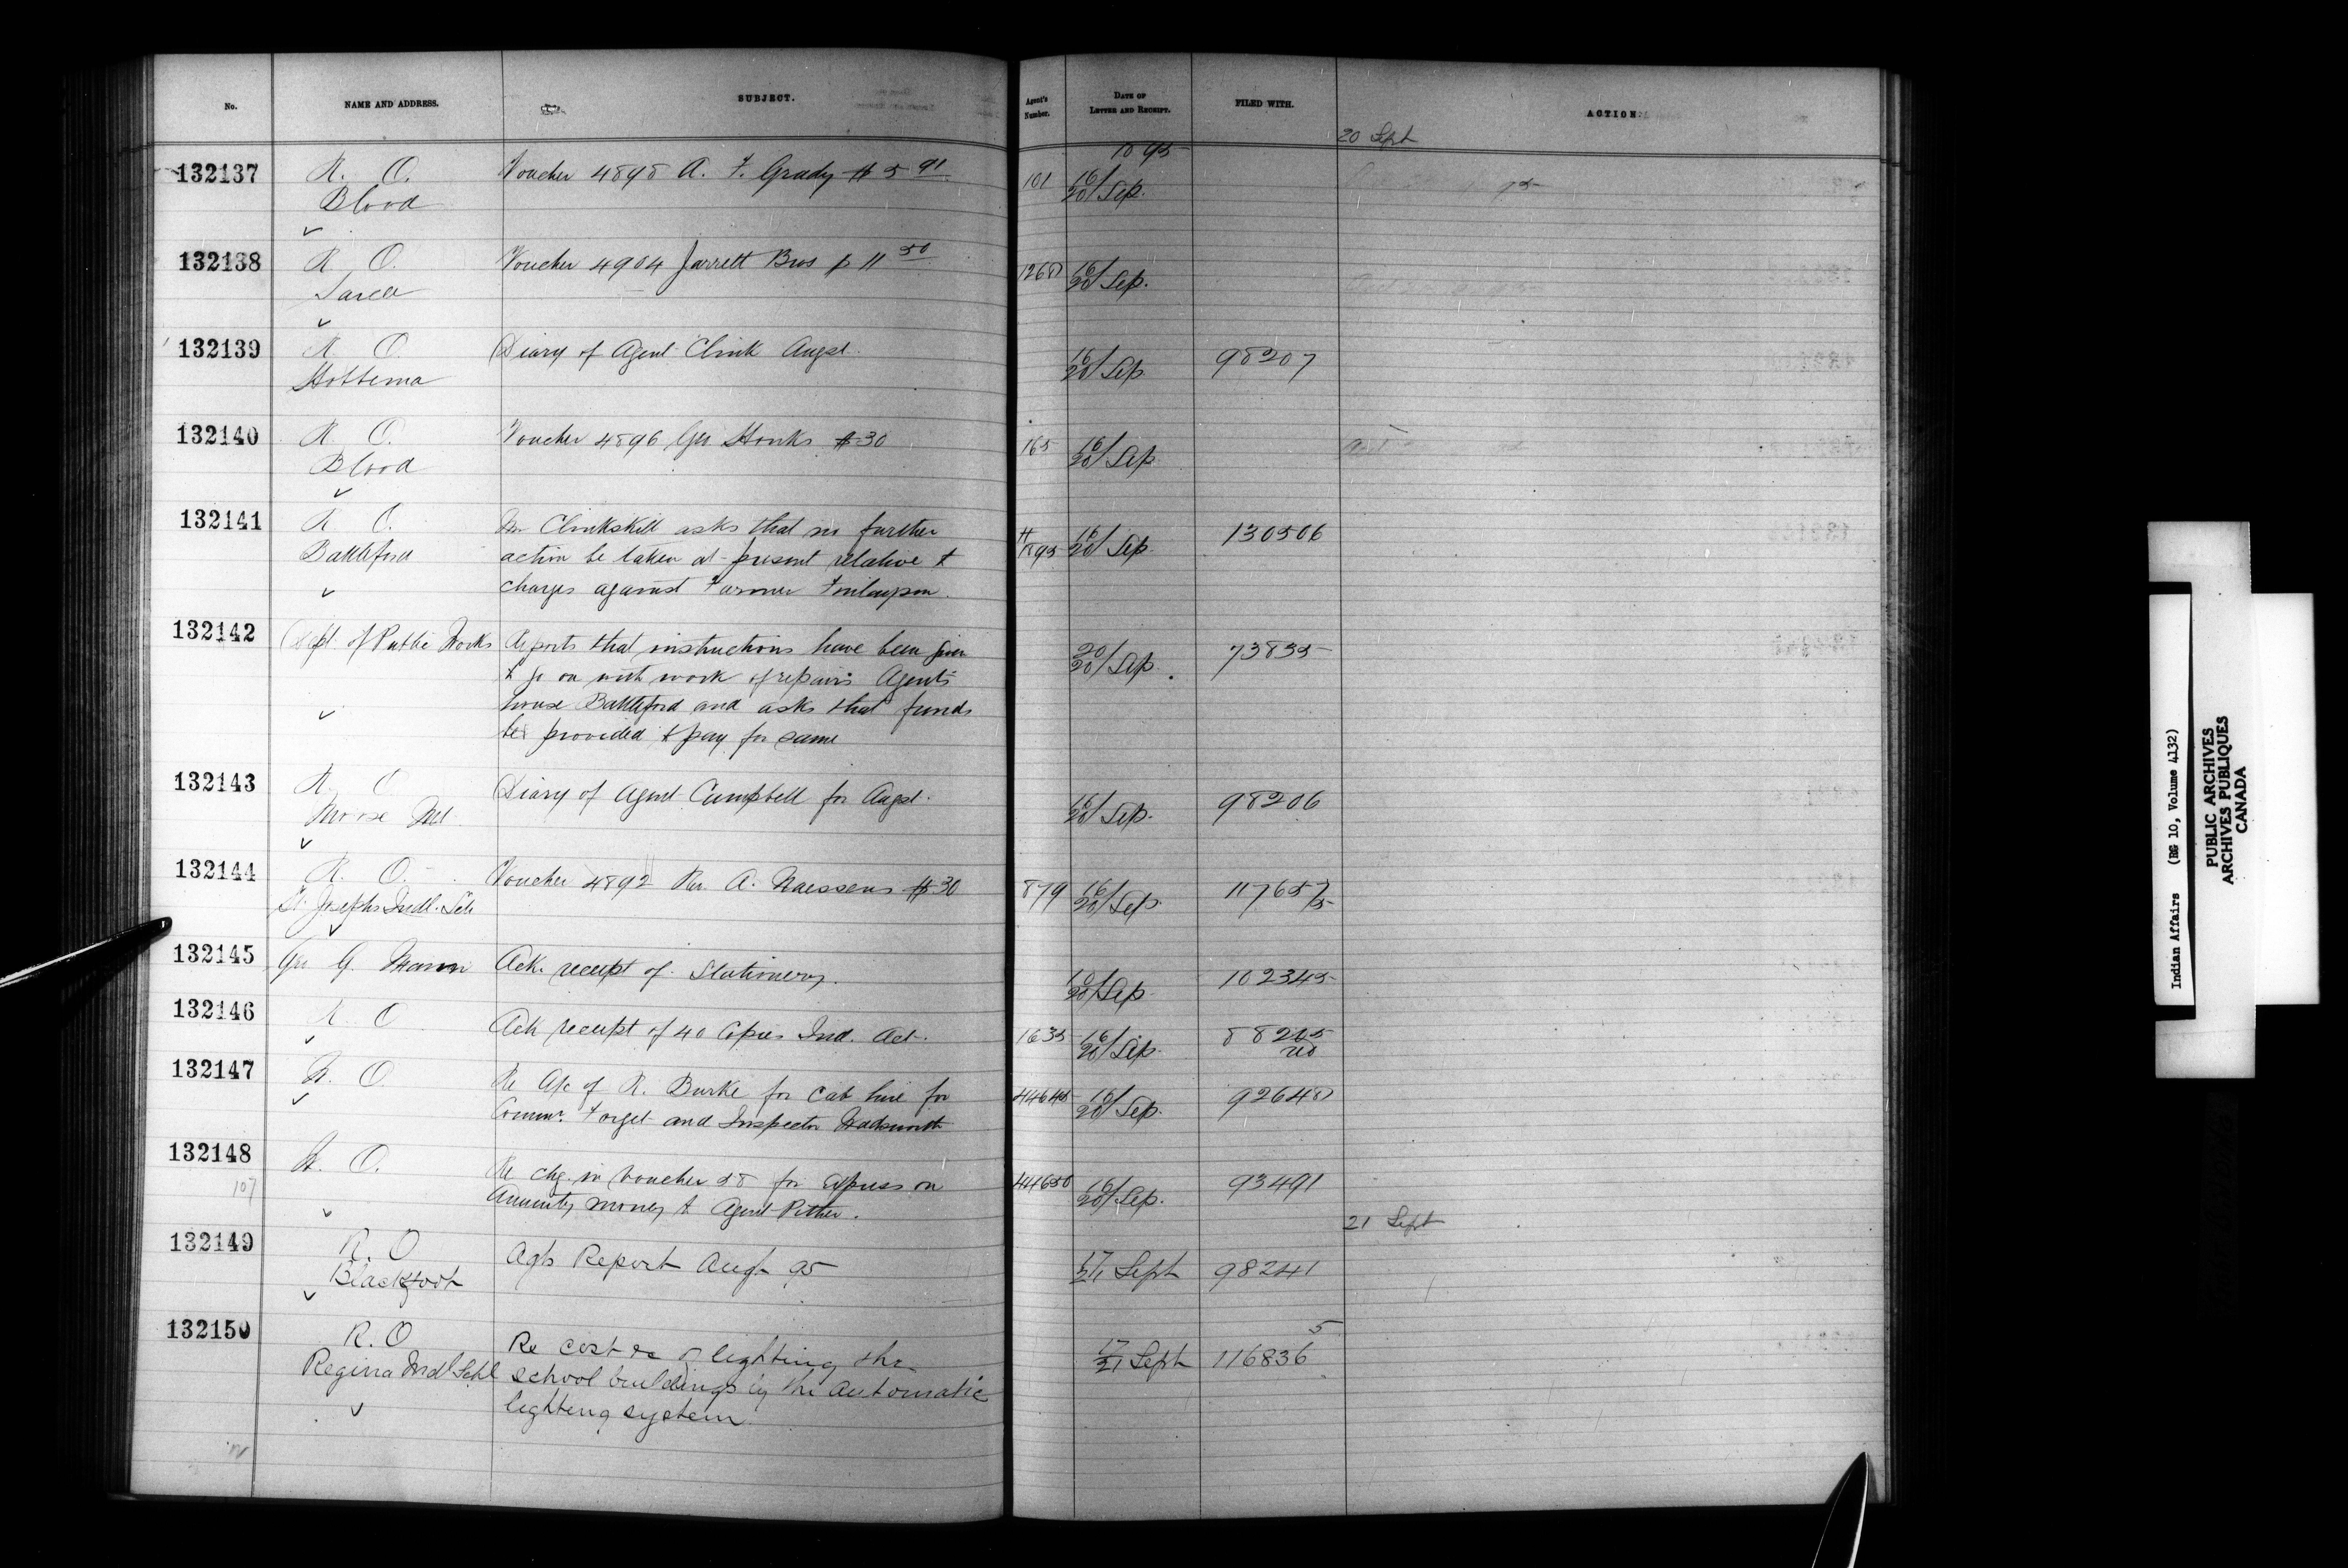 No. NAME AND ADDRESS. SUBJECT. Agent's Number. DATE OF LETTER AND RECEIPT. FILED WITH. ACTION.
20 Sept
1895
132137 R. O. Voucher 4898 A. F. Grady $5 91 101 16/20 Sep.
Blood
132138 R O. Voucher 4904 Jarrett Bros $ 11 50 1268 16/20 Sep.
Sarcee
132139 R O. Diary of Agent Clink Augst. 16/20 Sep 98207
Hobbema
132140 R O. Voucher 4896 Geo Houks $30 165 16/20 Sep
Blood
132141 R O. Mr Clinkskill asks that no further 16/20 Sep. 130506
Battleford action be taken at present relative t
charges against Farmer Finlayson.
132142 Dept. of Public Works Reports that instructions have been given 20/20 Sep. 73835
t go on with work of repairs Agents
house Battleford and asks that funds
be provided t pay for same
132143 R. O Diary of Agent Campbell for Augst. 16/20 Sep. 98206
Moose Mt.
132144 R. O. Voucher 4892 Rev A. Naessens $30 879 16/20 Sep. 117657/5
St. Josephs Indl. Sch
132145 Geo G. Mann Ack. receipt of Stationery. 10/20 Sep 102345
132146 R. O Ack receipt of 40 Copies Ind. Act. 1635 16/20 Sep. 88205
132147 R. O. Re A/c of R. Burke for cab hire for 44645 16/20 Sep. 92648
Commr. Forget and Inspector Wadsworth
132148 R. O. Re chg. in Voucher 58 for Express on 44650 16/20 Sep. 93491
107 Annuity money t Agent Pither.
21 Sept
132149 R. O Agts Report Augt 95 17/21 Sept 98241
Blackfoot
132150 R. O Re cost &c of lighting the 17/21 Sept 116836 5
Regina Indl Schl school buildings by the Automatic
lighting system.
Indian Affairs (RG 10, Volume 4132)
PUBLIC ARCHIVES
ARCHIVES PUBLIQUES
CANADA